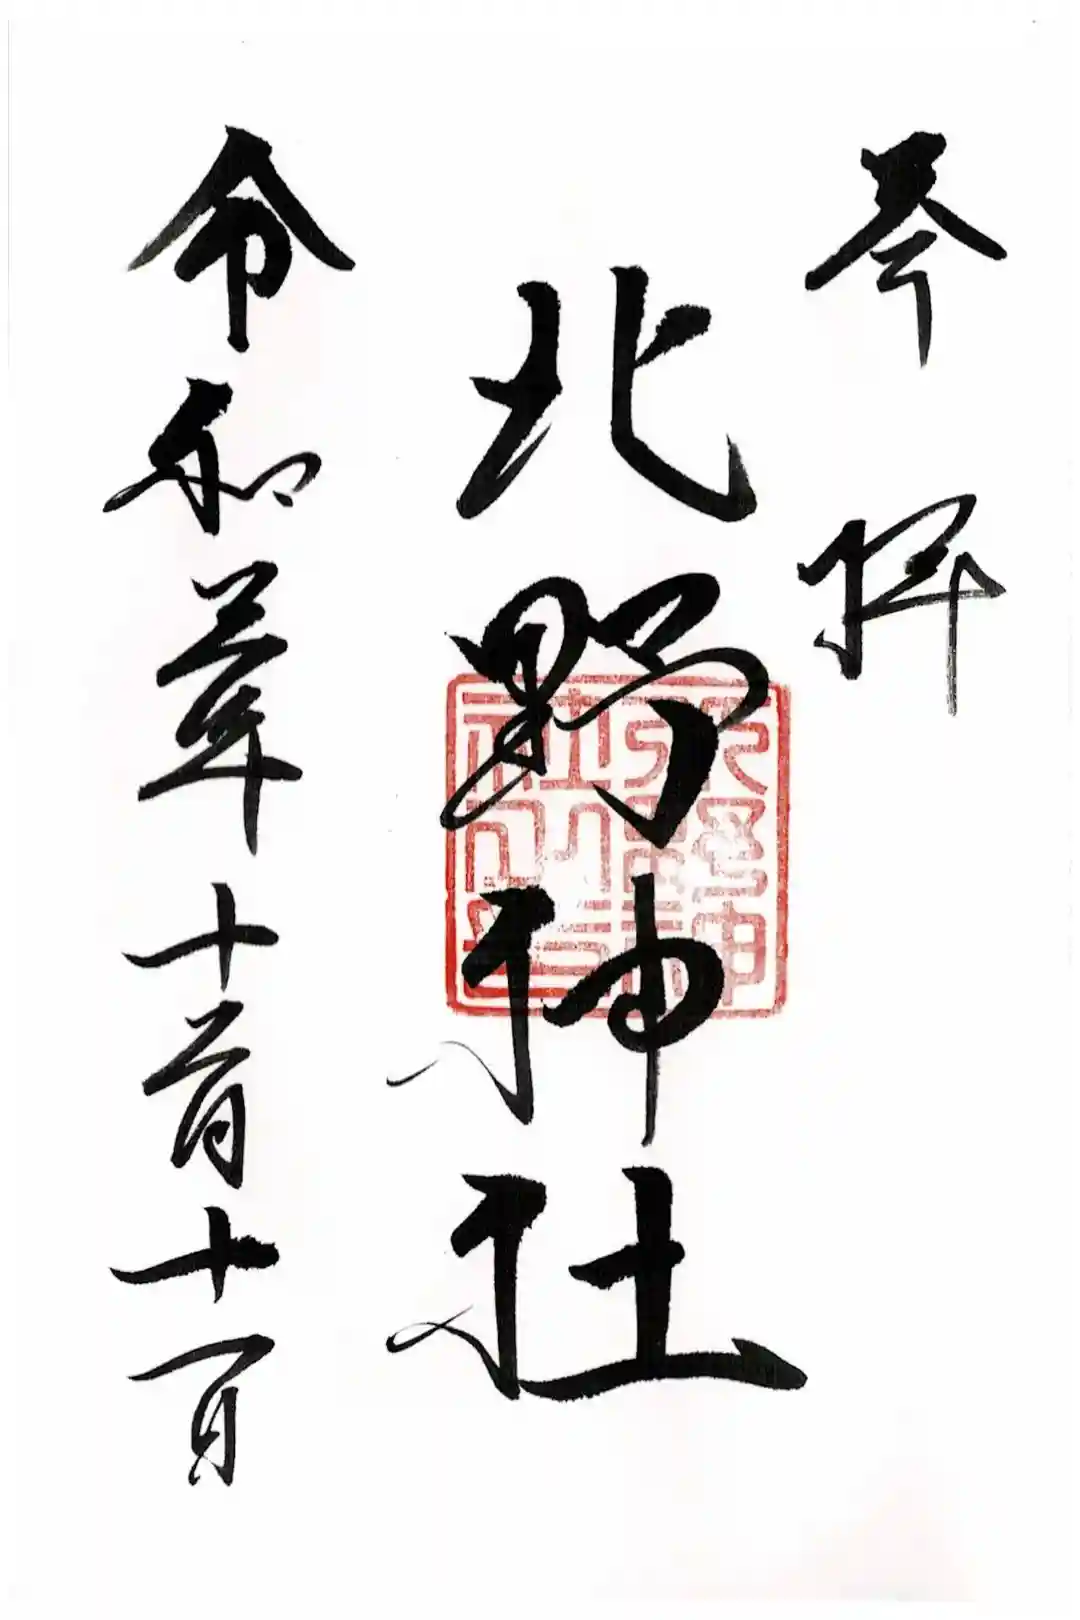 奉拝
北野神社
令和二年十二月十一日